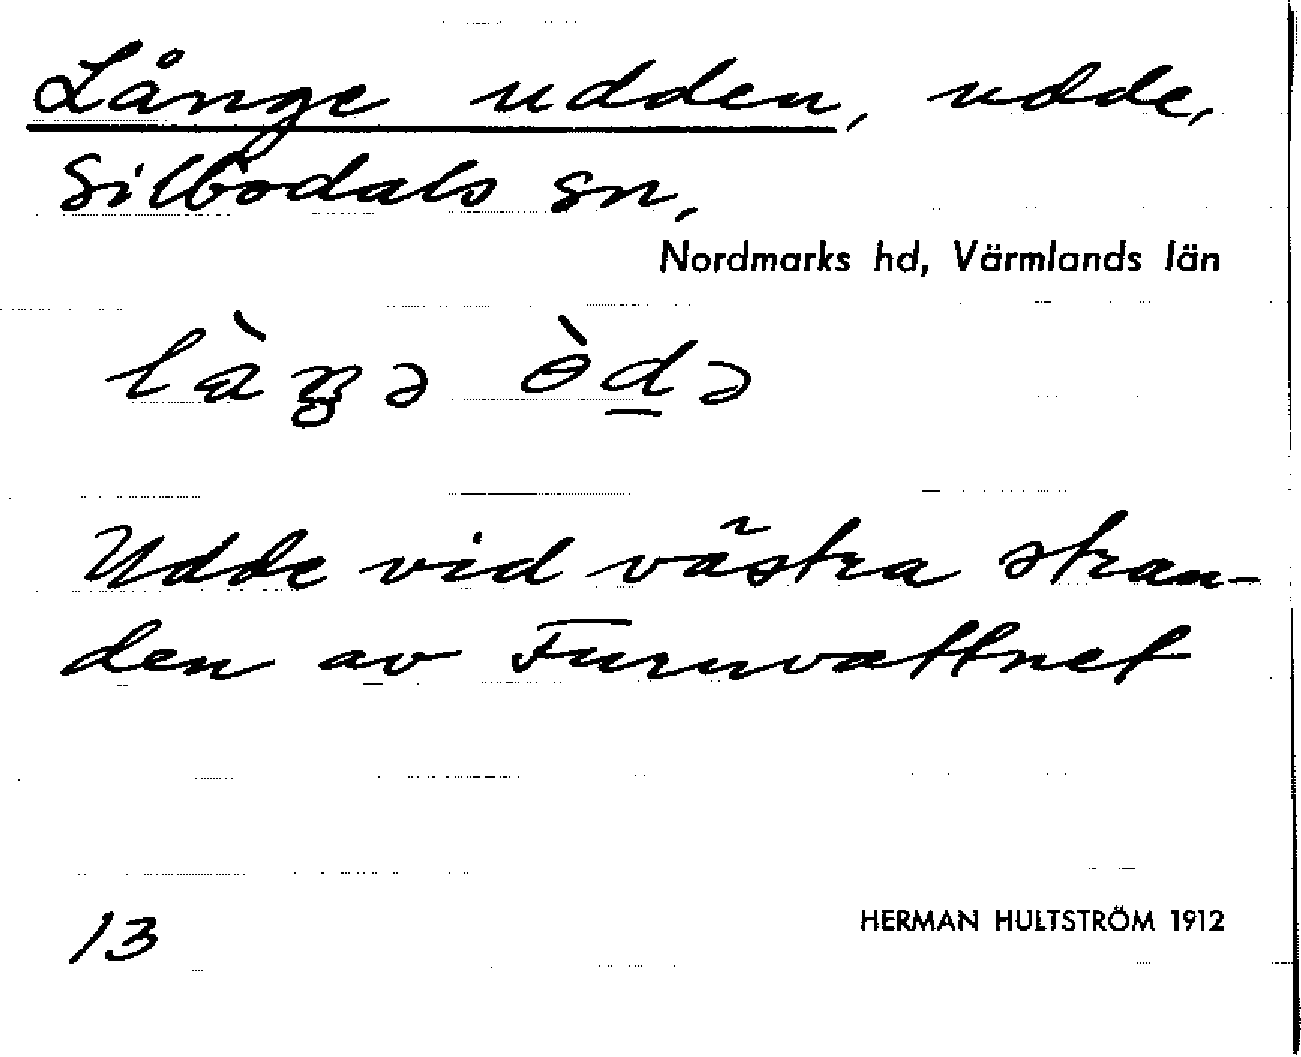 Långe udden, udde,
Silbodals sn,
Nordmarks hd, Värmlands län
làŋə òd̲ə
Udde vid västra stran-
den av Furuvattnet
13
HERMAN HULTSTRÖM 1912